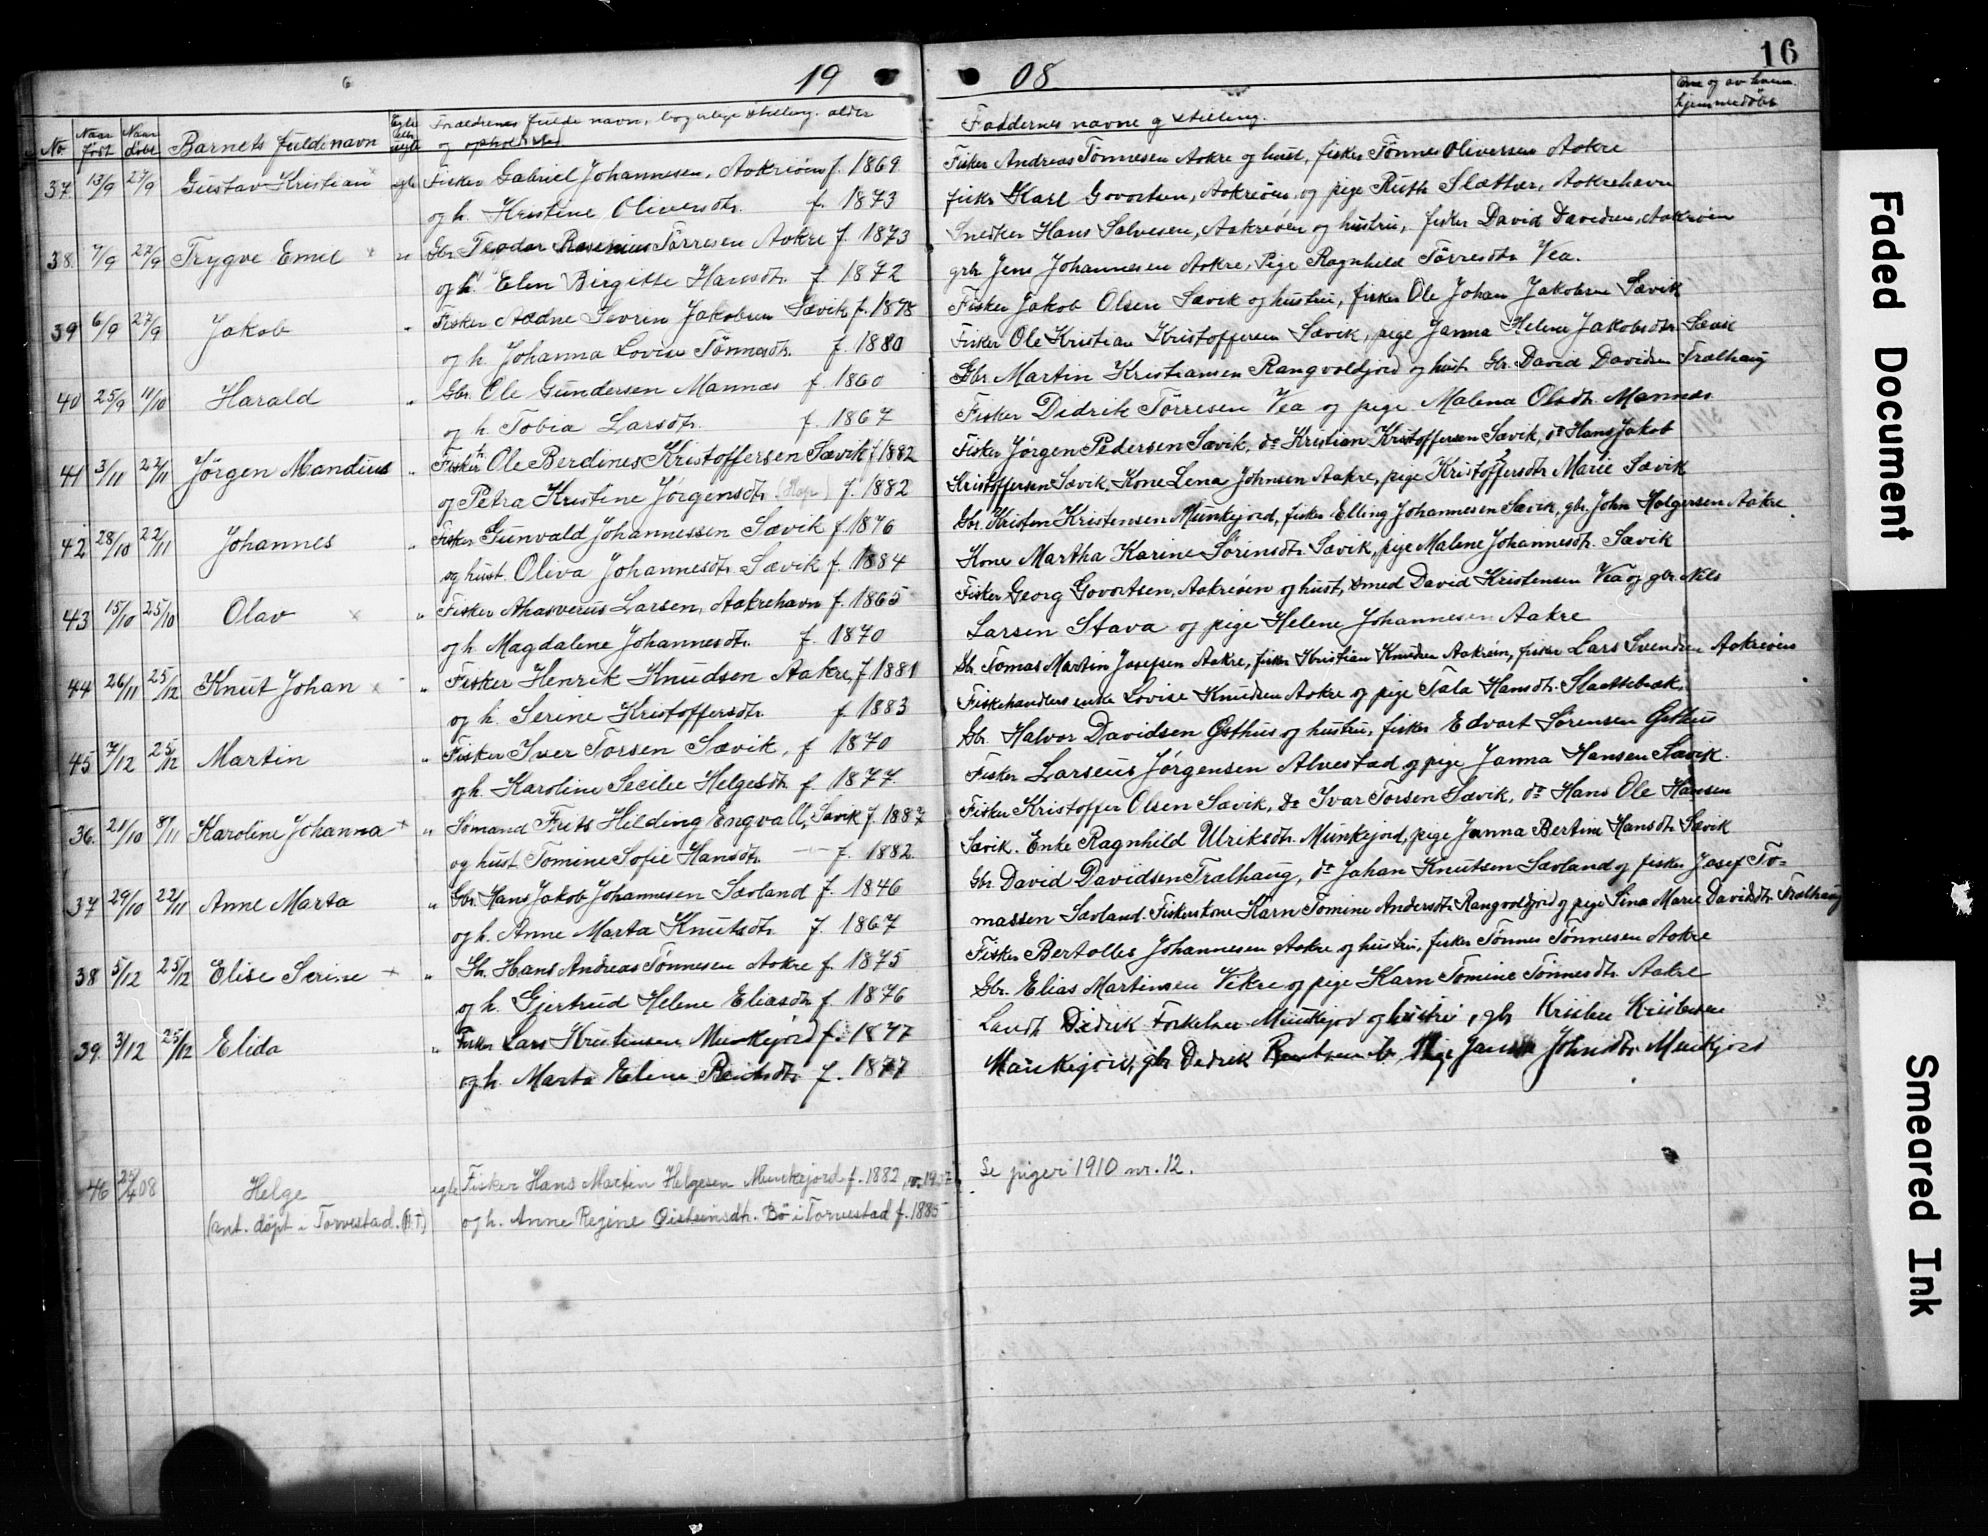 19 08.
16
No. Naar født Naar døbt Barnets fulde navn Egte eller uegte Forældrenes fulde navn, borgerlige stilling, alder og opholdssted Faddernes navne og stilling. Om og av hvem hjemmedøbt
37. 13/9 27/9 Gustav Kristian egte Fisker Gabriel Johannesen, Aakreøen f. 1869 Fisker Andreas Tønnesen Aakre og hust, fisker Tønnes Oliversen Aakre
og h. Kristine Oliversdtr. f. 1873 fisker Karl Govertsen, Aakreøen, og pige Ruth Slætter, Aakrehavn
38. 7/9 27/9 Trygve Emil " Gbr. Teodor Rosenius Tørresen Aakre f. 1873 Snedker Hans Salvesen, Aakreøen og hustru, fisker David Davidsen, Aakreøen
og h. Elen Birgitte Hansdtr. f. 1872 gbr. Jens Johannesen Aakre, Pige Ragnhild Tørresdtr. Vea.
39 6/9 27/9 Jakob " Fisker Aadne Sevren Jakobsen Sævik f. 1878 Fisker Jakob Olsen Sævik og hustru, fisker Ole Johan Jakobsen Sævik
og h. Johanna Lovise Tønnesdtr. f. 1880 Fisker Ole Kristian Kristoffersen Sævik, pige Janna Helene Jakobsdtr. Sævik
40 25/9 11/10 Harald " Gbr. Ole Gundersen Mannes f. 1860 Gbr. Martin Kristiansen Rangvoldfjord og hust. Gbr. David Davidsen Trælhaug
og h. Tobia Larsdtr. f. 1867 Fisker Didrik Tørresen Vea og pige Malena Olsdtr. Mannes
41 3/11 22/11 Jørgen Mandius " Fisker Ole Berdines Kristoffersen Sævik f. 1882 Fisker Jørgen Pedersen Sævik, do Kristian Kristoffersen Sævik, do Hans Jakob
og Petra Kristine Jørgensdtr. (Hop) f. 1882 Kristoffersen Sævik, Kone Lena Johnsen Aakre, pige Kristoffersdtr. Marie Sævik
42 28/10 22/11 Johannes " Fisker Gunvald Johannessen Sævik f. 1876 Gbr. Kristen Kristensen Munkejord, fisker Elling Johannesen Sævik, gbr. John Holgersen Aakre.
og hust. Oliva Johannesdtr. Sævik f. 1884 Kone Martha Karine Sørensdtr. Sævik, pige Malene Johannesdtr. Sævik
43 15/10 25/10 Olav " Fisker Ahasverus Larsen, Aakrehavn f. 1865 Fisker Georg Govertsen, Aakreøen og hust, smed David Kristensen Vea og gbr. Nils
og h. Magdalene Johannesdtr. f. 1870 Larsen Stava og pige Helene Johannesen Aakre
44 26/11 25/12 Knut Johan " Fisker Henrik Knudsen Aakre, f. 1881 Gbr. Tomas Martin Josefsen Aakre, fisker Kristian Knudsen Aakreøen, fisker Lars Svendsen Aakreøen
og h. Serine Kristoffersdtr. f. 1883 Fiskehandlers enke Lovise Knudsen Aakre og pige Tala Hansdtr. Slaettebræk,
45 7/12 25/12 Martin " Fisker Iver Torsen Sævik, f 1870 Gbr. Halvor Davidsen Østhus og hustru, fisker Edvart Sørensen Østhus
og h. Karoline Secilie Helgesdtr. f. 1877. Fisker Larseus Jørgensen Alvestad og pige Janna Hansen Sævik.
36. 21/10 8/11 Karoline Johanna " Sømand Frits Hilding Engvall, Sævik f. 1887 Fisker Kristoffer Olsen Sævik, Do Ivar Torsen Sævik, do Hans Ole Hansen
og hust Tomine Sofie Hansdtr. — f. 1882 Sævik. Enke Ragnhild Ulriksdtr. Munkejord, pige Janna Bertine Hansdtr. Sævik
37 29/10 22/11 Anne Marta " Gbr. Hans Jakob Johannesen Sævland f. 1846 Gbr. David Davidsen Trælhaug, do Johan Knutsen Sævland og fisker Josef To-
og h. Anne Marta Knutsdtr. f. 1867 massen Sævland. Fiskerkone Karn Tomine Andersdtr. Rangvoldfjord og pige Sina Marie Davidsdtr. Trælhaug
38 5/12 25/12 Elise Serine " Gbr. Hans Andreas Tønnesen Aakre f. 1875 Fisker Bertolles Johannesen Aakre og hustru, fisker Tønnes Tønnesen Aakre
og h. Gjertrud Helene Eliasdtr. f. 1876 Gbr. Elias Martinsen Vikre og pige Karn Tomine Tønnesdtr. Aakre
39. 3/12 25/12 Elida " Fisker Lars Kristensen Munkejord f. 1877 Landh. Didrik Torkelsen Munkejord og hustru, gbr Kristen Kristensen
og h. Marta Eline Reintsdtr. f. 1877 Munkejord, gbr Didrik Pige Janna Johnsdtr. Munkjord
46 25/4 08 Helge egte Fisker Hans Martin Helgesen Munkejord f. 1882, Se piger 1910 nr. 12.
(ant. døpt i Torvestad. (B.T.) og h. Anne Regine Øisteinsdtr. Bø i Torvestad f. 1885
Faded Document
Smeared Ink